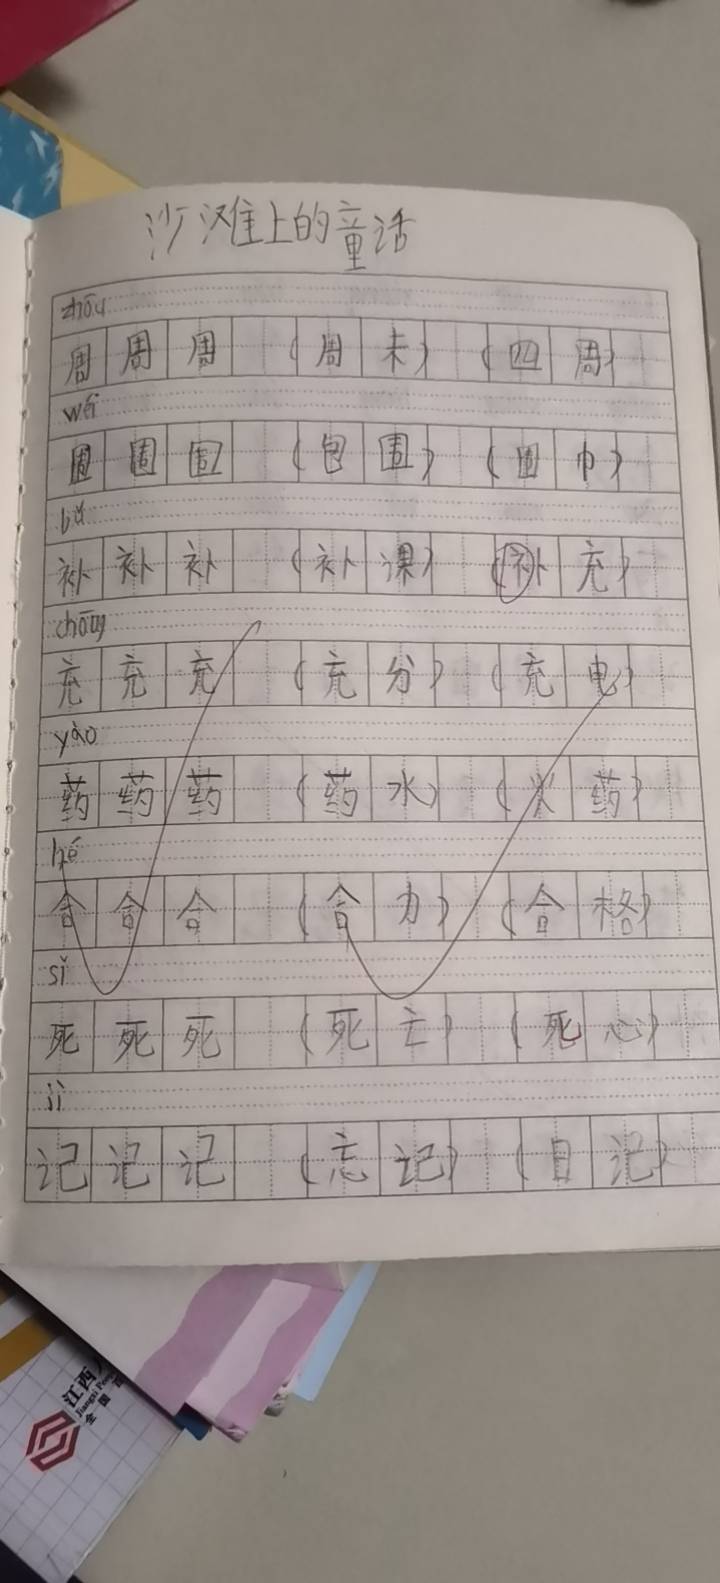 沙滩上的童话
zhōu
周 周 周 (周末) (四周)
wéi
围 围 围 (包围) (围巾)
bǔ
补 补 补 (补课) (补充)
chōng
充 充 充 (充分) (充电)
yào
药 药 药 (药水) (火药)
hé
合 合 合 (合力) (合格)
sǐ
死 死 死 (死亡) (死心)
jì
记 记 记 (忘记) (日记)
江西
Jiangxi
全国